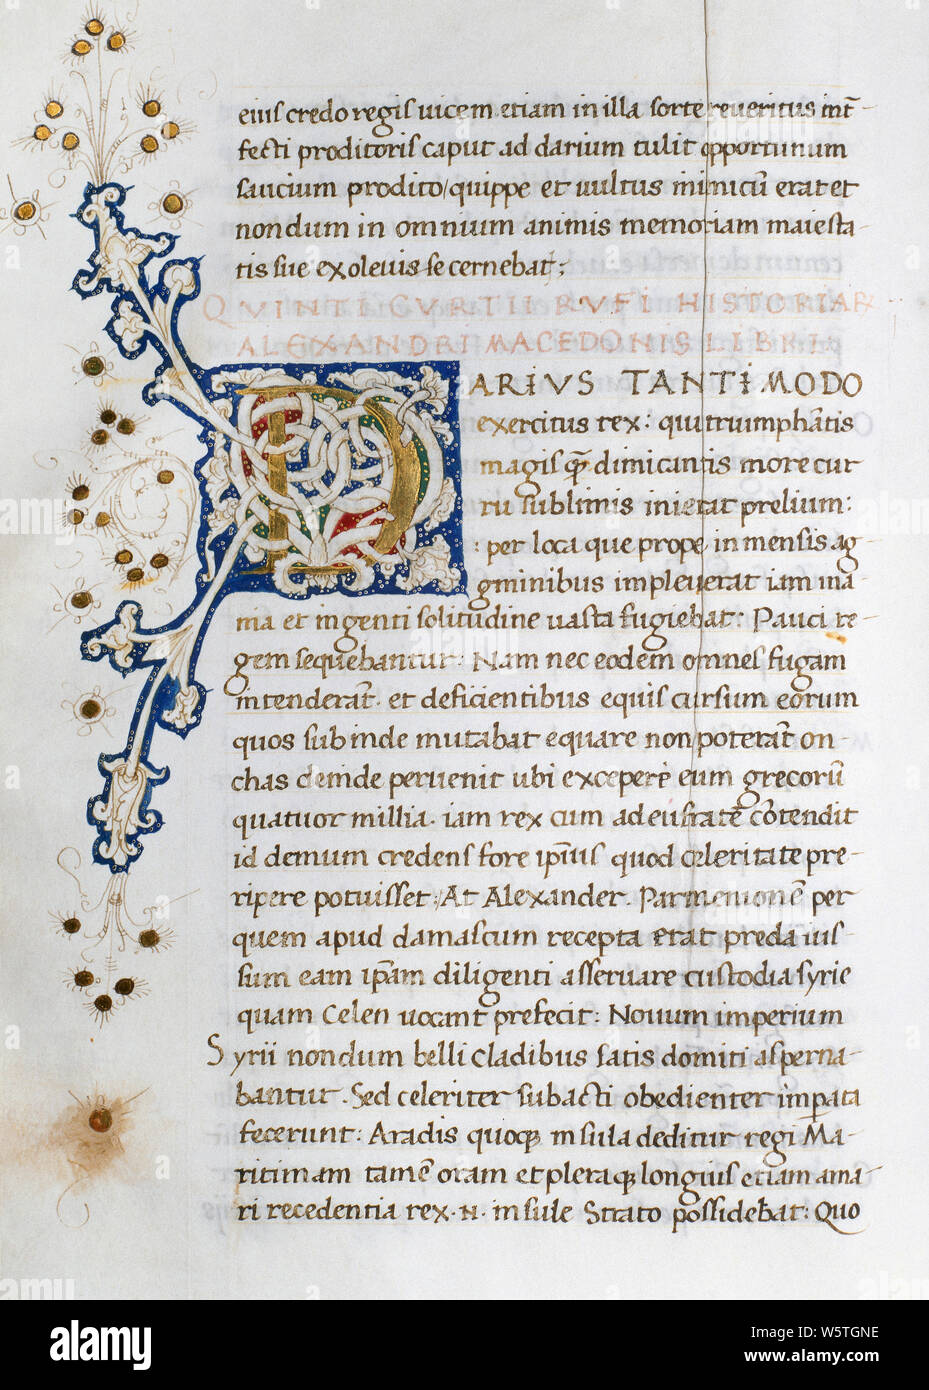 eius credo regis uicem etiam in illa sorte reueritus int̄
fecti proditoris caput ad darium tulit opportunum
saucium prodito/quippe et uultus inimicū erat et
nondum in omnium animis memoriam maiesta-
tis sue exoleuisse cernebat;
QVINTI CVRTII RVFI HISTORIAR
ALEXANDRI MACEDONIS LIBRI
DARIVS TANTI MODO
exercitus rex: qui triumphātis
magis q̄ dimicantis more cur
ru sublimis inierat prelium:
: per loca que prope inmensis ag
gminibus impleuerat iam ina-
nia et ingenti solitudine uasta fugiebat: Pauci re-
gem sequebantur: Nam nec eodem omnes fugam
intenderāt. et deficientibus equis cursum eorum
quos subinde mutabat equare non poterāt on-
chas deinde peruenit ubi excepere eum grecorū
quatuor millia. iam rex cum ad eufratē cōtendit
id demum credens fore ipsius quod celeritate pre-
ripere potuisset: At Alexander. Parmenionē per
quem apud damascum recepta erat preda uis-
sum eam ip̄am diligenti asseruare custodia syrie
quam Celen uocant prefecit: Nouum imperium
Syrii nondum belli cladibus satis domiti asperna-
bantur. Sed celeriter subacti obedienter imp̄ata
fecerunt: Aradis quoq; insula deditur regi Ma-
ritimam tamē oram et pleraq; longius etiam a ma-
ri recedentia rex .N. insule Strato possidebat: Quo
alamy
W5TGNE
www.alamy.com